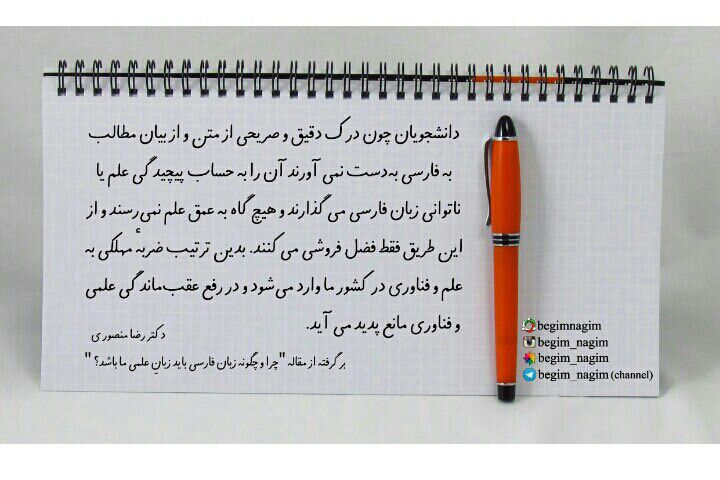 دانشجویان چون درک دقیق و صریحی از متن و از بیان مطالب
به فارسی به‌دست نمی آورند آن را به حساب پیچیدگی علم یا
ناتوانی زبان فارسی می گذارند و هیچ گاه به عمق علم نمی‌رسند و از
این طریق فقط فضل فروشی می کنند. بدین ترتیب ضربهٔ مهلکی به
علم و فناوری در کشور ما وارد می‌شود و در رفع عقب‌ماندگی علمی
و فناوری مانع پدید می آید.
دکتر رضا منصوری
برگرفته از مقاله "چرا و چگونه زبان فارسی باید زبانِ علمی ما باشد؟ "
begimnagim
begim_nagim
begim_nagim
begim_nagim (channel)